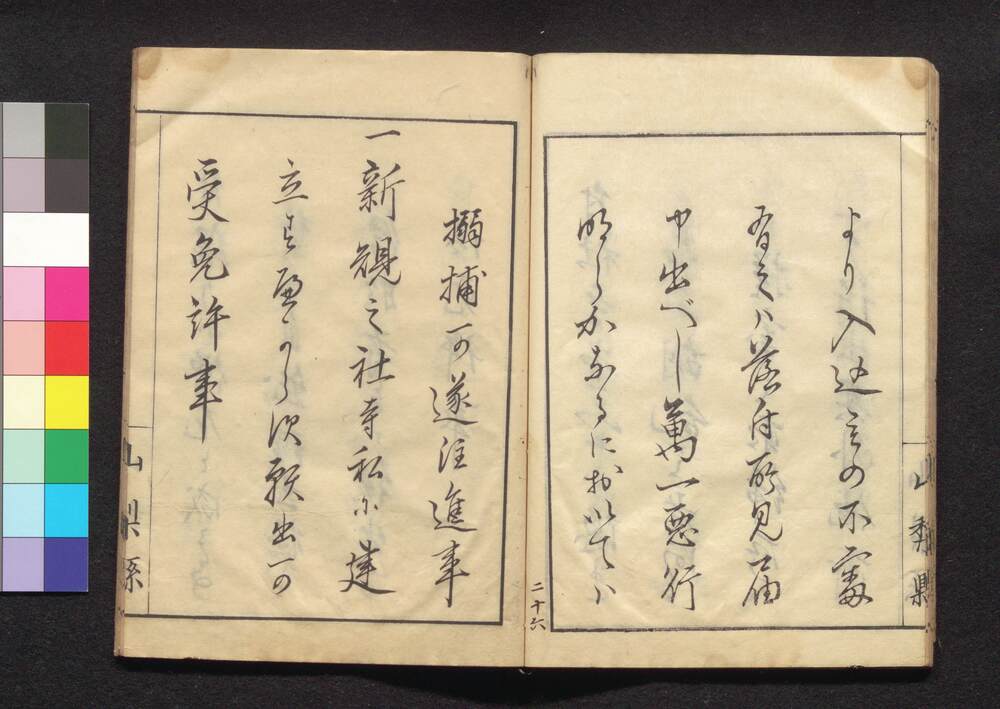 より入込之もの不審
有之ハ落付所見届
申出べし萬一悪行
明らかなるにおいてハ
山梨縣
二十六
搦捕可遂注進事
一新規之社寺私に建
立すべからず願出可
受免許事
山梨縣